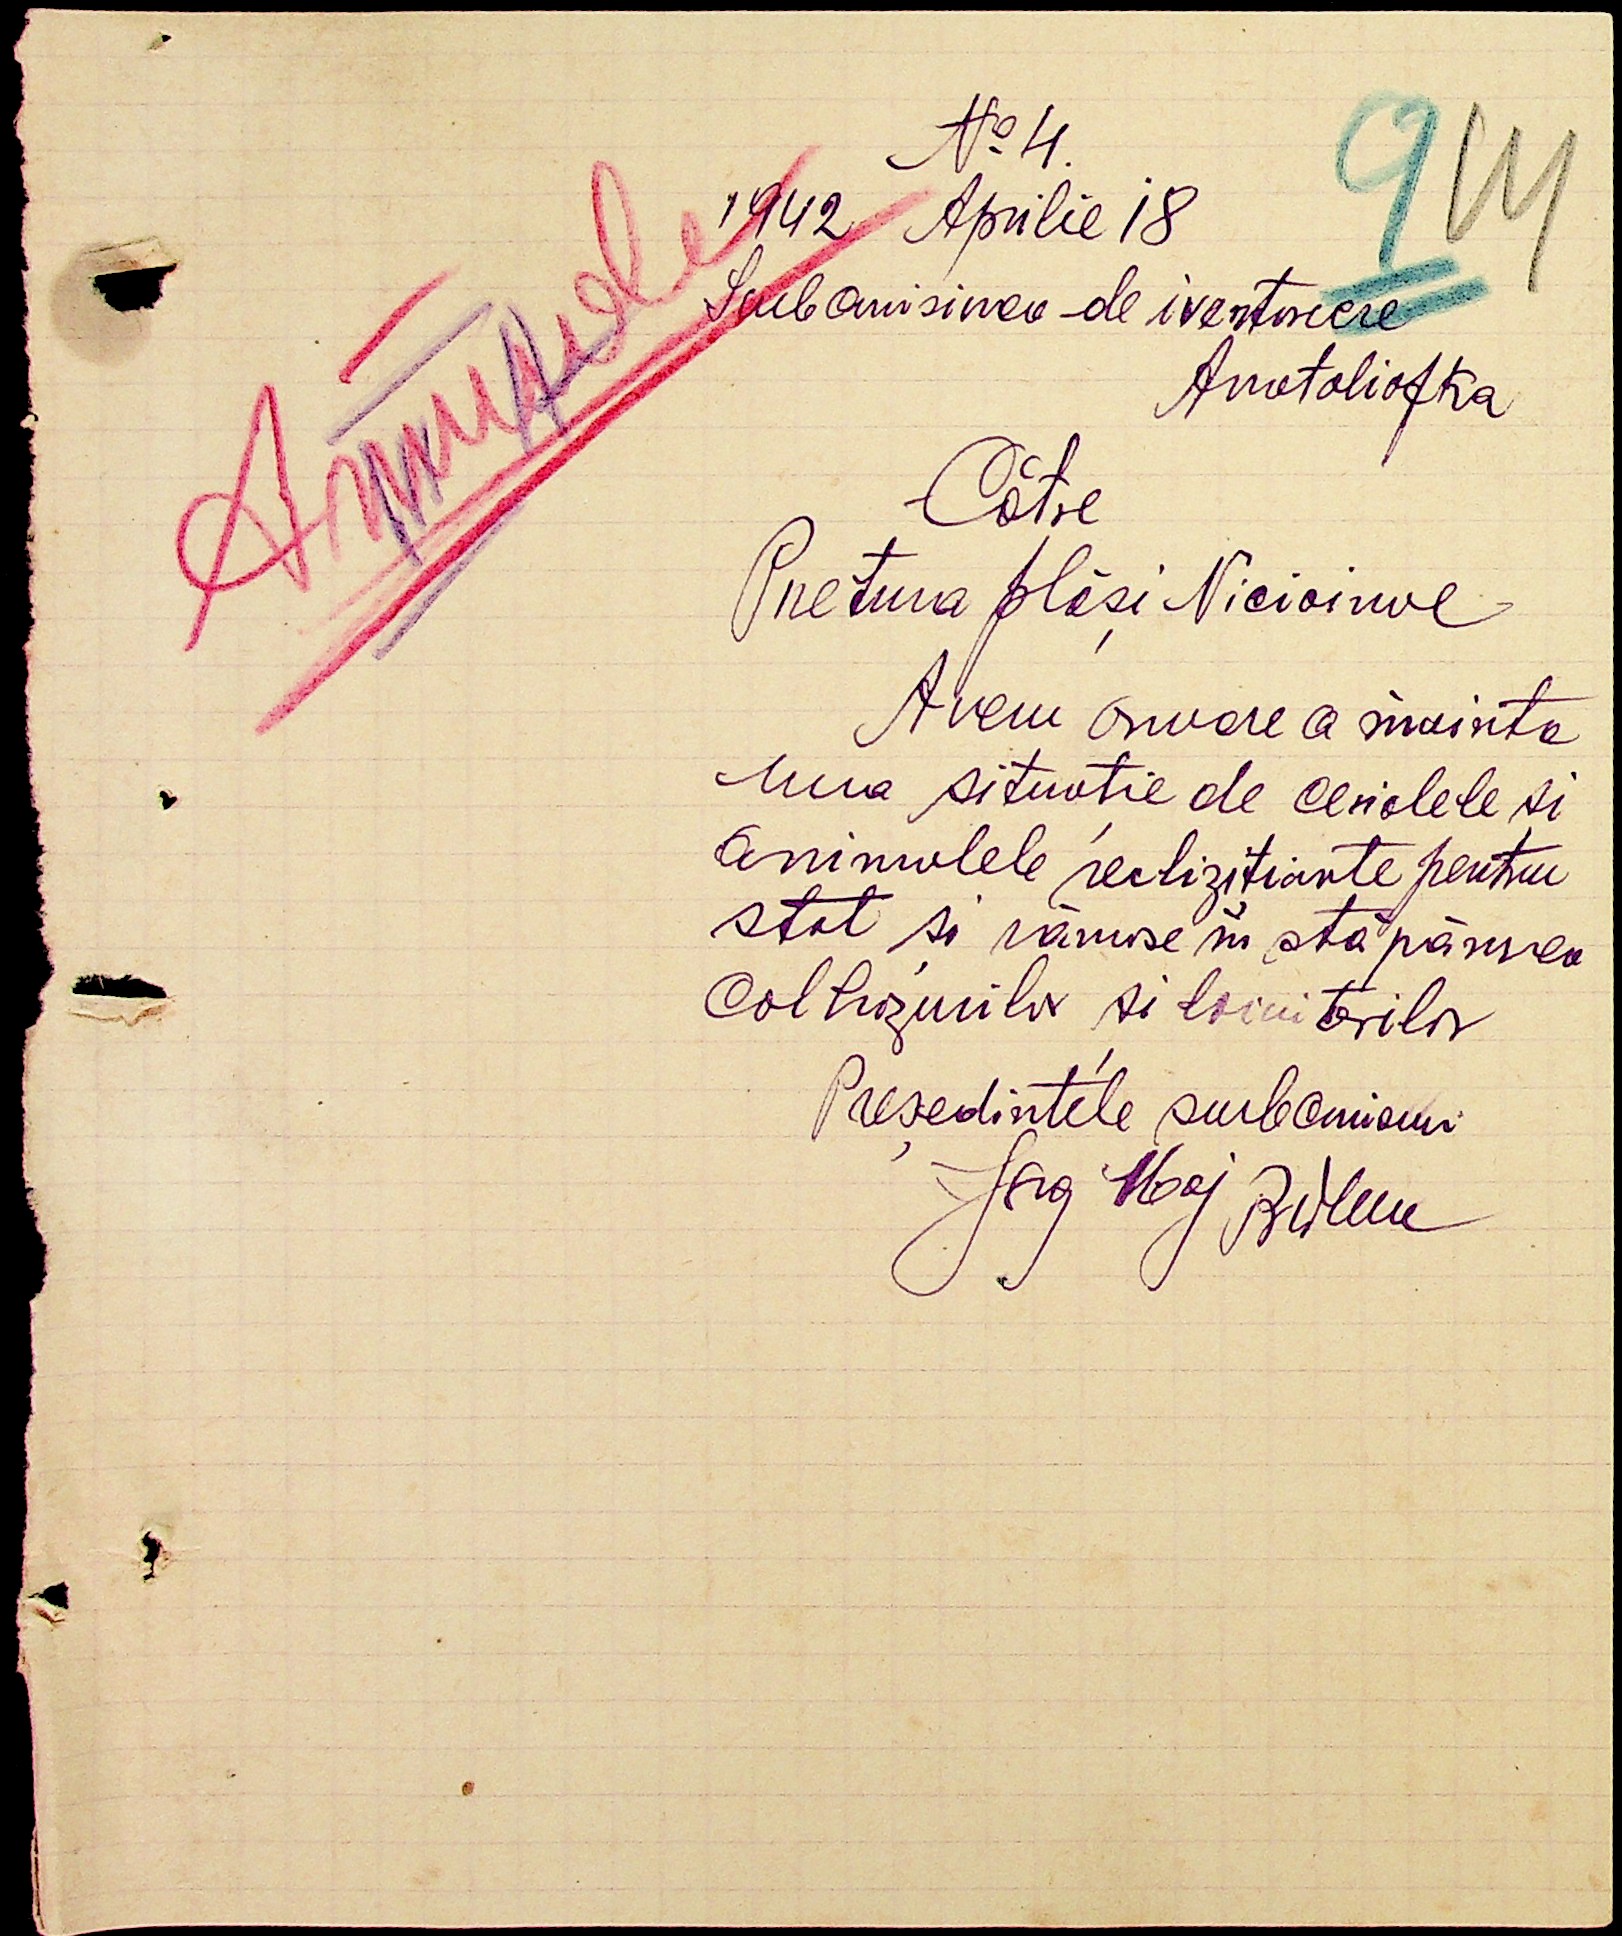 9
№ 4.
1942 Aprilie 18
Subcomisinea de iventariere
Anatoliofka
Către
Pretura plăși
Avem onoare a înainta
una situatie de cerialele și
animalele reclizițiante pentru
stat și rămase în stăpânirea
Colhozurilor și locuitorilor
Președintele subcomisiuni